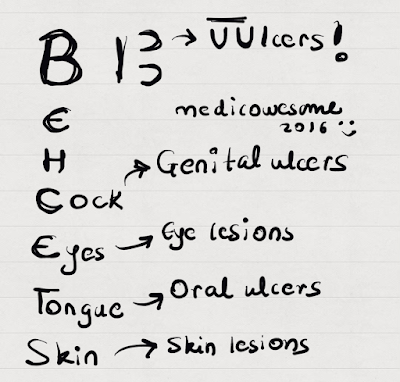 B IƆƆ → UUlcers!
E
medicowesome
2016 :)
H
Cock → Genital ulcers
Eyes → Eye lesions
Tongue → Oral ulcers
Skin → Skin lesions